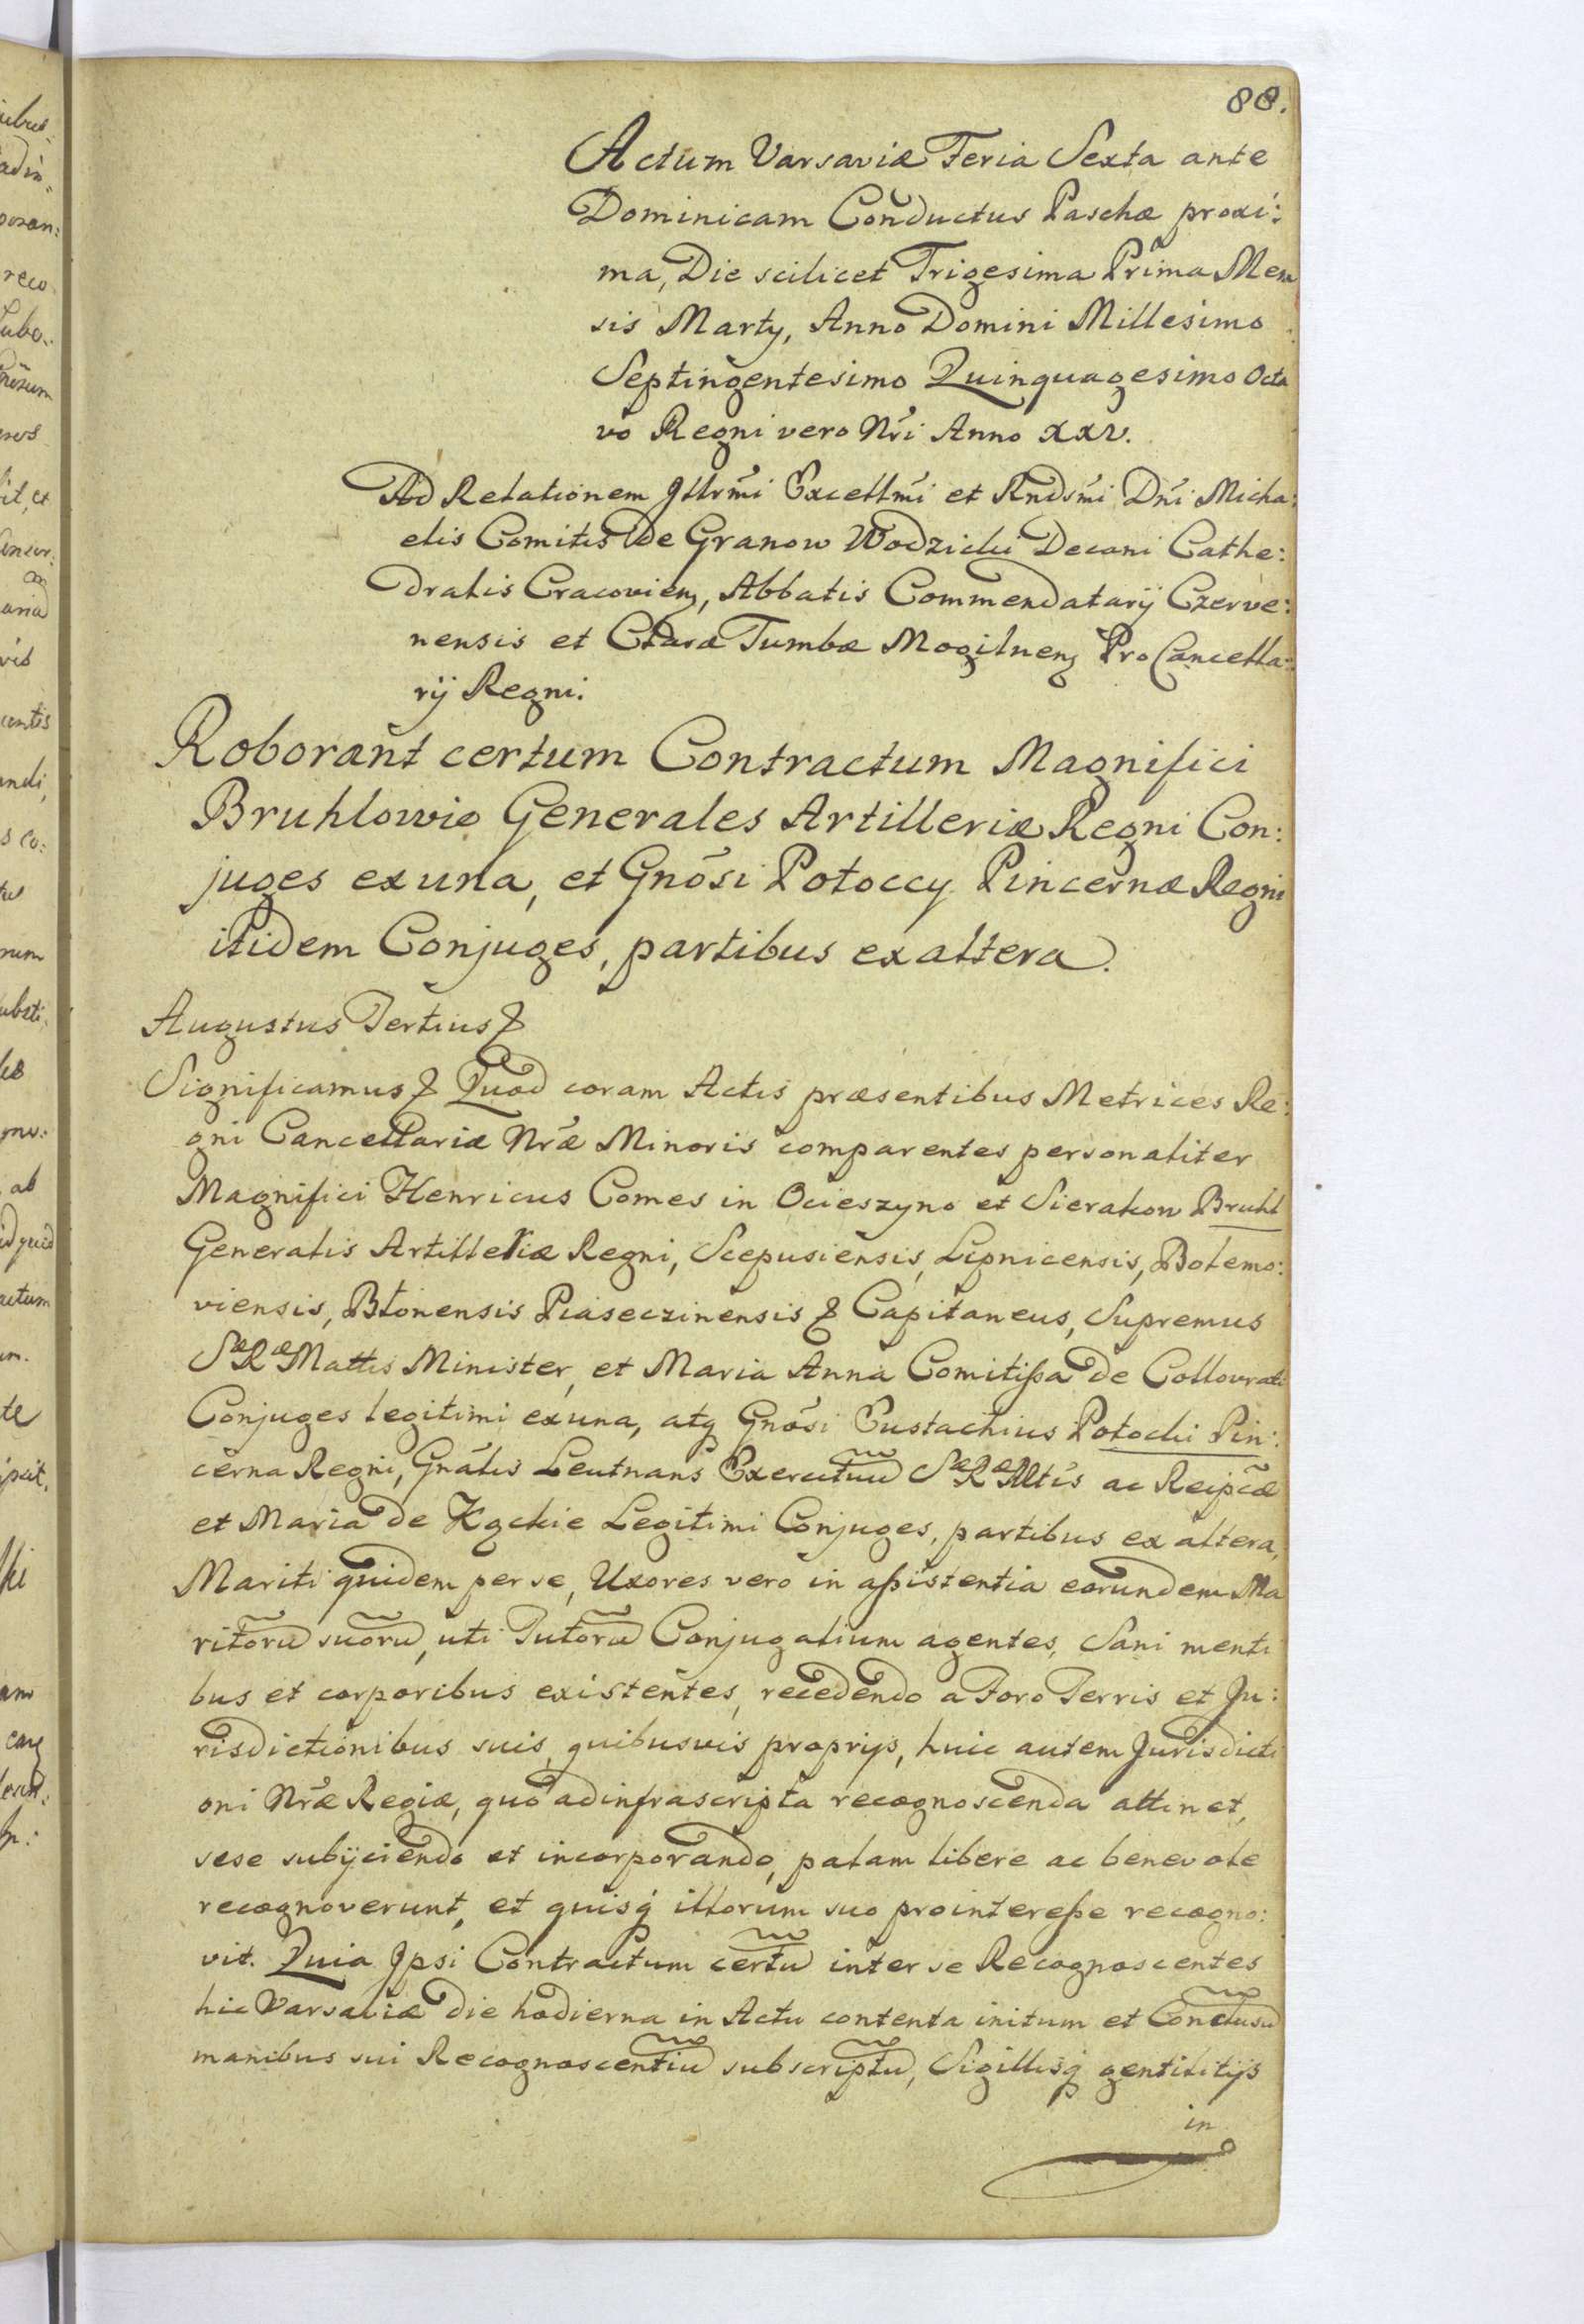 88.
Actum Varsaviæ Feria Sexta ante
Dominicam Conductus Paschæ proxi:
ma, Die scilicet Trigesima Prima Men
sis Marty, Anno Domini Millesimo
Septingentesimo Quinquagesimo Octa
vo Regni vero Nri Anno XXV.
Ad Relationem Jllrmi Excellmi et Rndsmi Dni Micha:
elis Comitis de Granow Wodzicki Decani Cathe:
dralis Cracovien, Abbatis Commendatarij Czerve:
nensis et Claræ Tumbæ Mogilnen Pro Cancella:
rij Regni.
Roborant certum Contractum Magnifici
Bruhlowie Generales Artilleriæ Regni Con:
juges ex una, et Gnosi Potoccy Pincernæ Regni
itidem Conjuges, partibus ex altera.
Augustus Tertius
Significamus Quod coram Actis præsentibus Metrices Re:
gni Cancellariæ Nræ Minoris comparentes personaliter
Magnifici Henricus Comes in Ocieszyno et Sierakow Bruhl
Generalis Artilleriæ Regni, Scepusiensis, Lipnicensis, Bolemo:
viensis, Btonensis Piaseczinensis Capitaneus, Supremus
SæRæMattis Minister, et Maria Anna Comitißa de Collowrati
Conjuges legitimi ex una, atq Gnosi Eustachius Potocki Pin:
cerna Regni, Gnalis Leutnans Exercituu SæRæMtis ac Reipcæ
et Maria de Kątkie Legitimi Conjuges, partibus ex altera,
Mariti quidem per se, Uxores vero in aßistentia eorundem Ma
ritoru suoru, uti Tutoru Conjugalium agentes, Sani menti
bus et corporibus existentes, recedendo a Foro Terris et Ju:
risdictionibus suis, quibusvis proprijs, huic autem Jurisdicti
oni Nræ Regiæ, quo ad infrascripta recognoscenda attinet,
sese subijciendo et incorporando, palam libere ac benevole
recognoverunt, et quisq illorum suo pro intereße recogno:
vit. Quia Jpsi Contractum certu inter se Recognoscentes
hic Varsaviæ die hodierna in Actu contenta initum et Conclusu
manibus sui Recognoscentiu subscriptu, Sigillisq gentilitijs
in